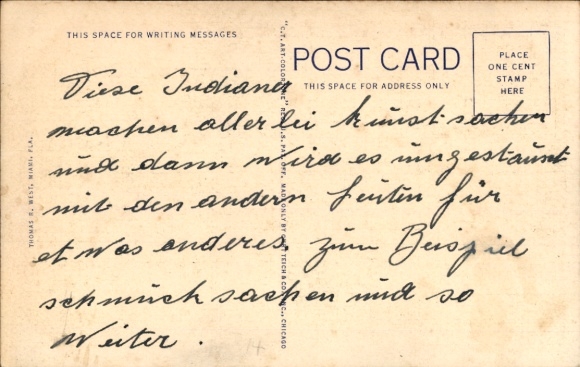 THIS SPACE FOR WRITING MESSAGES
POST CARD
THIS SPACE FOR ADDRESS ONLY
PLACE
ONE CENT
STAMP
HERE
Diese Indianer
machen allerlei kunst sachen
und dann wird es umgestaunt
mit den andern leuten für
et was anderes, zum Beispiel
schmuck sachen und so
weiter.
THOMAS R. WEST, MIAMI, FLA.
"C.T. ART-COLORTONE" REG. U.S. PAT. OFF. MADE ONLY BY CURT TEICH & CO., INC., CHICAGO
14